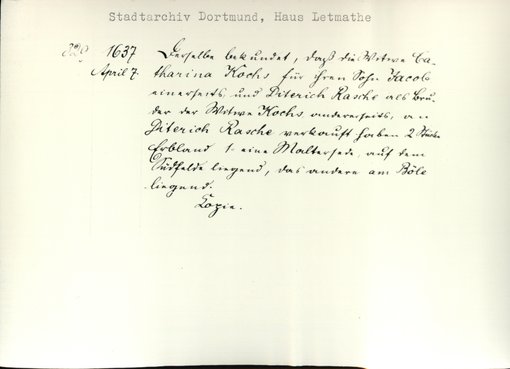 Stadtarchiv Dortmund, Haus Letmathe
1637 Derselbe bekundet, daß die Witwe Ca-
April 7. tharina Kochs für ihren Sohn Jacob
einerseits und Diterich Rasche als Bru-
der der Witwe Kochs andererseits, an
Diterich Rasche verkauft haben 2 Stücke
Erbland 1. eine Maltersede, auf dem
liegend, das andere am Böle
liegend.
Kopie.